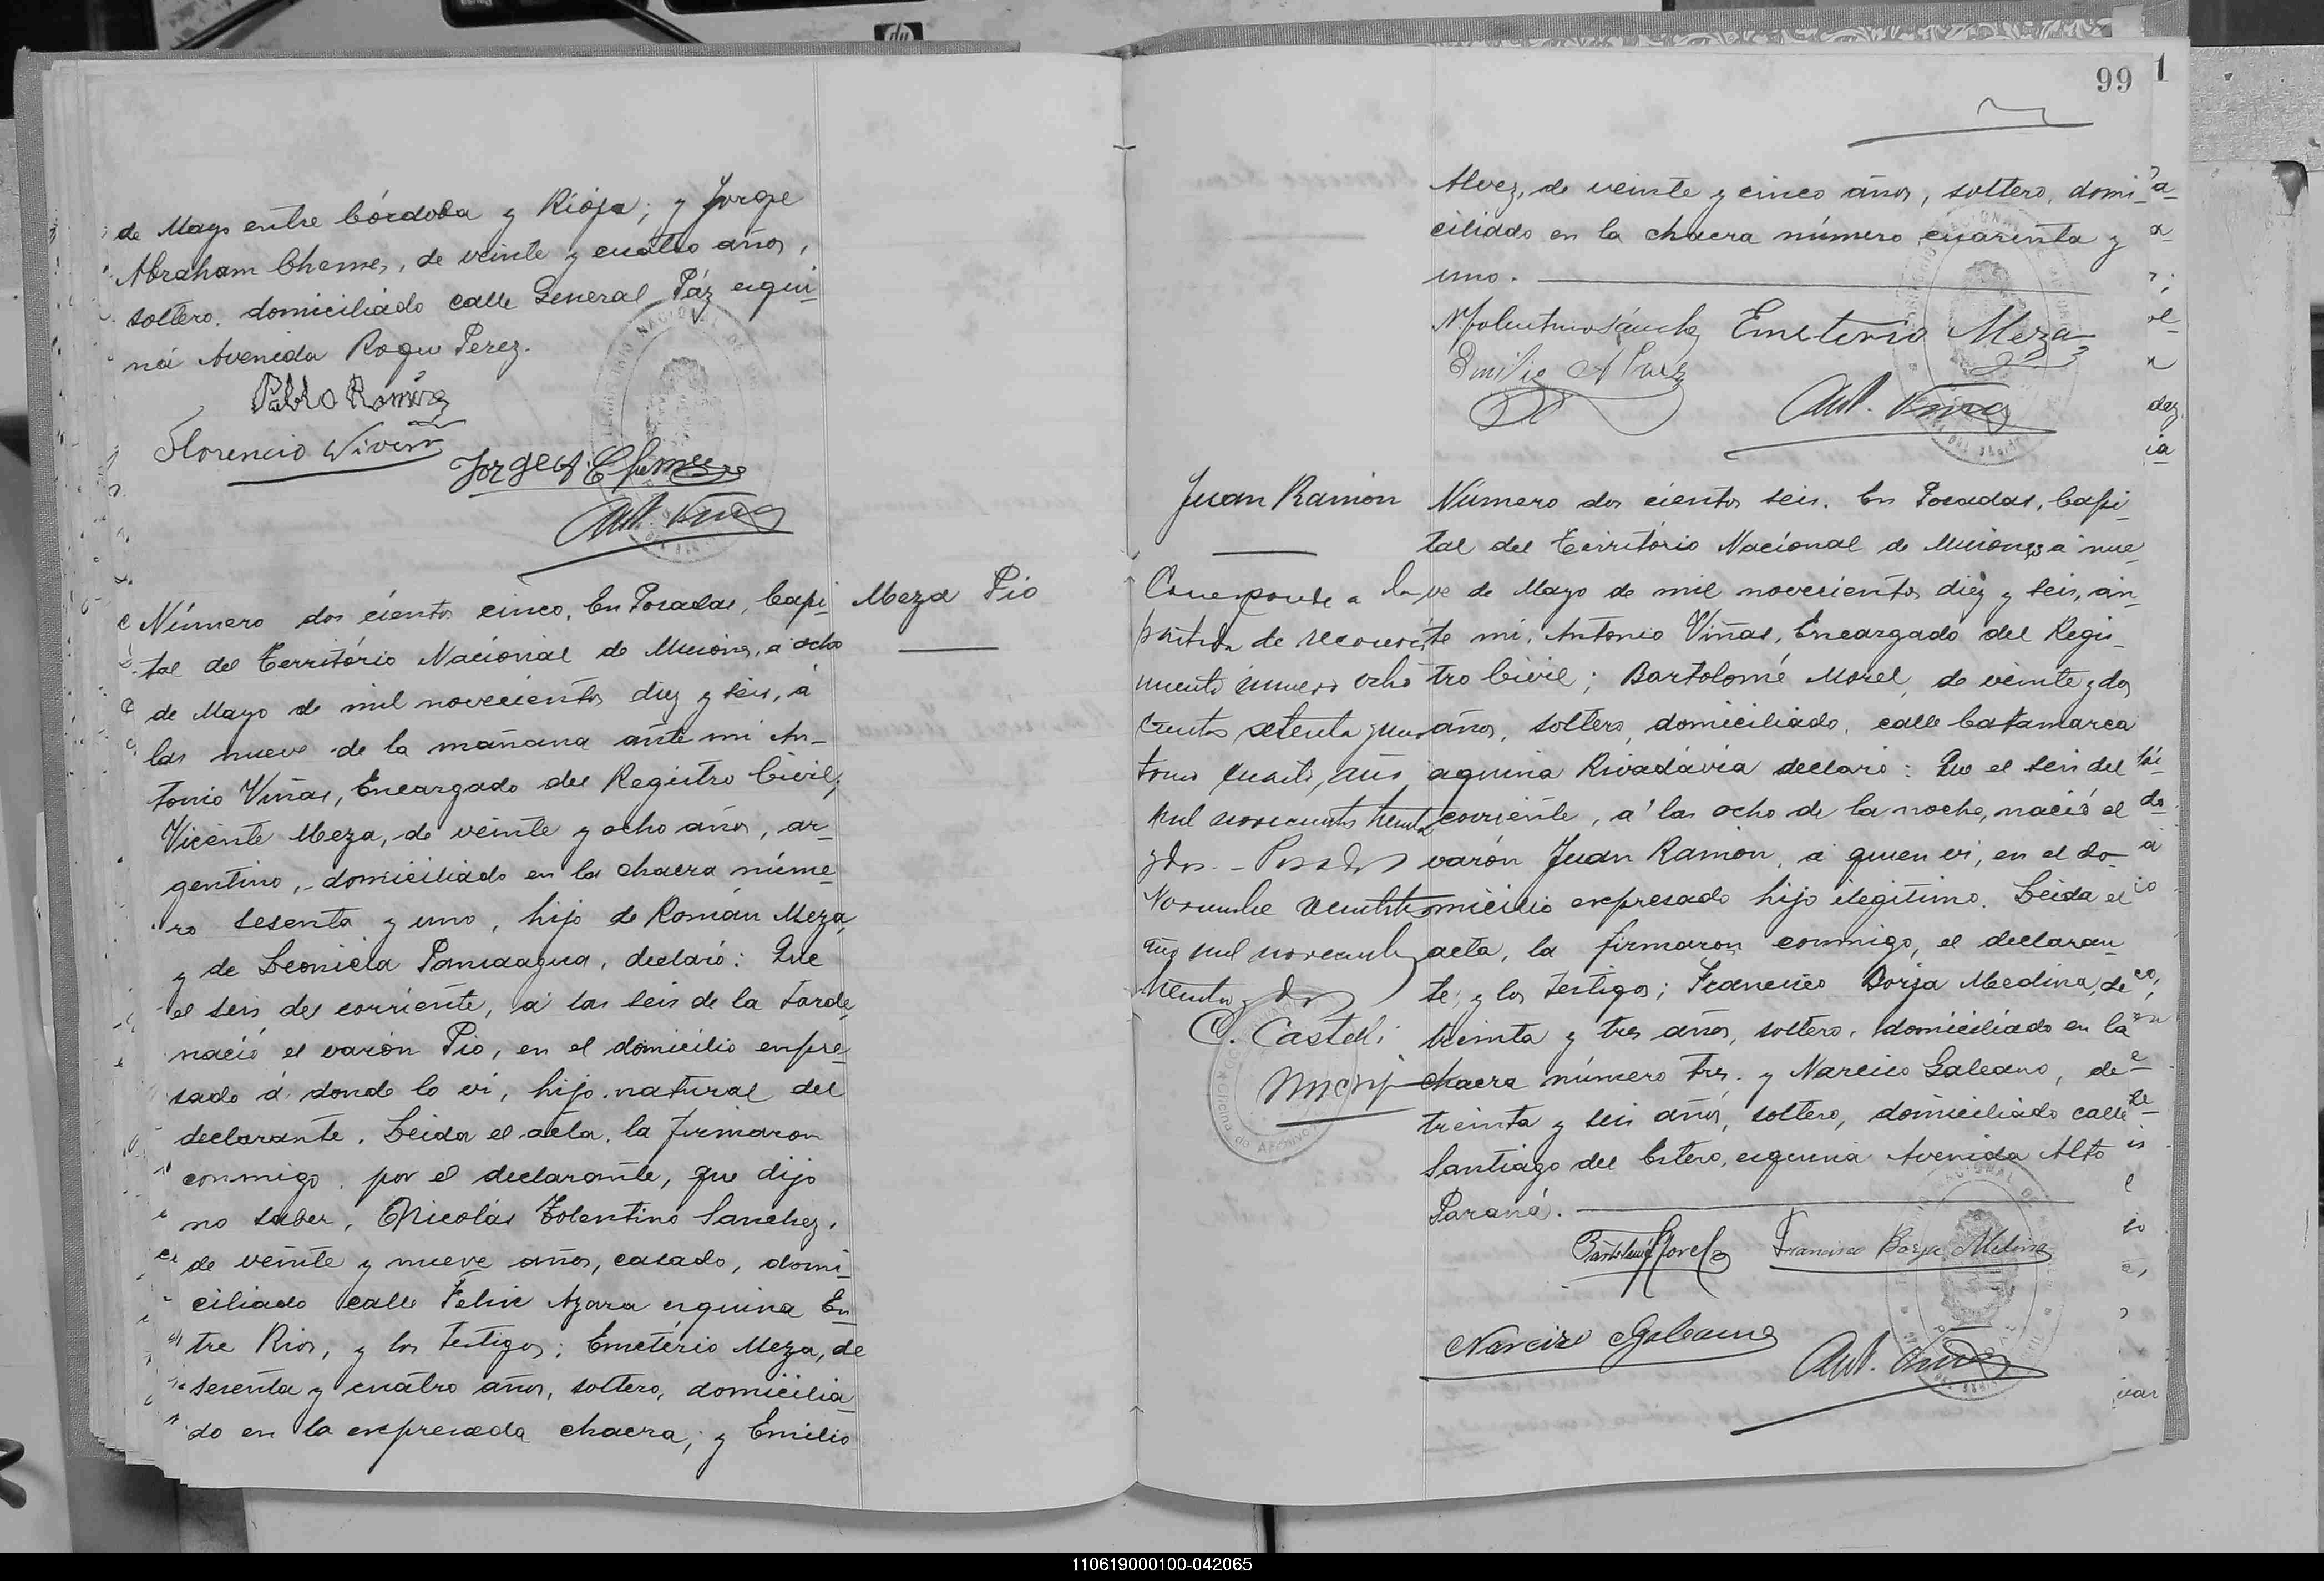 de Mayo entre Córdoba y Rioja; y Jorge
Abraham Chemes, de veinte y cuatro años,
soltero, domiciliado calle General Páz esqui-
ná Avenida Roque Perez.
Pablo Ramirez
Florencio
Jorge A. Chemes
Ant. Viñas
Número dos cientos cinco. En Posadas, Capi-
tal del Território Nacional de Misiones, a ocho
de Mayo de mil novecientos diez y seis, á
las nueve de la mañana ante mi An-
tonio Viñas, Encargado del Registro Civil,
Vicente Meza, de veinte y ocho años, ar-
gentino, domiciliado en la chacra núme-
ro sesenta y uno, hijo de Román Meza,
y de Leonicia Paniaagua, declaró: Que
el seis del corriente, á las seis de la tarde,
nació el varón Pio, en el domicilio expre-
sado á donde lo vi, hijo natural del
declarante. Leida el acta, la firmaron
conmigo, por el declarante, que dijo
no saber, Nicolás Tolentino Sanchez,
de veinte y nueve años, casado, domi-
ciliado calle Felix Azara esquina En-
tre Rios, y los testigos; Emetério Meza, de
sesenta y cuatro años, soltero, domicilia-
do en la expresada chacra; y Emilio
Meza Pio
99
1
Alvez, de veinte y cinco años, soltero, domi-
ciliado en la chacra número cuarenta y
uno.
N. Tolentino Sánchez Emeterio Meza
Emilio Alvez
Ant. Viñas
Juan Ramón
Corresponde a la
partida de reconoci-
miento número ocho
cientos setenta y uno
tomo cuarto, año
mil novecientos treinta
y dos. - Posadas
Noviembre
año mil novecientos
treinta y dos
C. Castelli
Número dos cientos seis. En Posadas, Capi-
tal del Território Nacional de Misiones a nue-
ve de Mayo de mil novecientos diez y seis, an-
te mi, Antonio Viñas, Encargado del Regis-
tro Civil; Bartolomé Morel, de veinte y dos
años, soltero, domiciliado, calle Catamarca
esquina Rivadávia declaró: Que el seis del
corriente, a' las ocho de la noche, nació el
varón Juan Ramón, a quien vi, en el do-
micilio expresado hijo ilegitimo. Leida el
acta, la firmaron conmigo, el declaran-
te; y los testigos; Francisco Borja Medina, de
treinta y tres años, soltero, domiciliado en la
chacra número tres. y Narciso Galeano, de
treinta y seis años, soltero, domiciliado calle
Santiago del Estero, esquina Avenida Alto
Paraná.
Bartolomé Morel Francisco Borja Medina
Narciso Galeano
Ant. Viñas
110619000100-042065